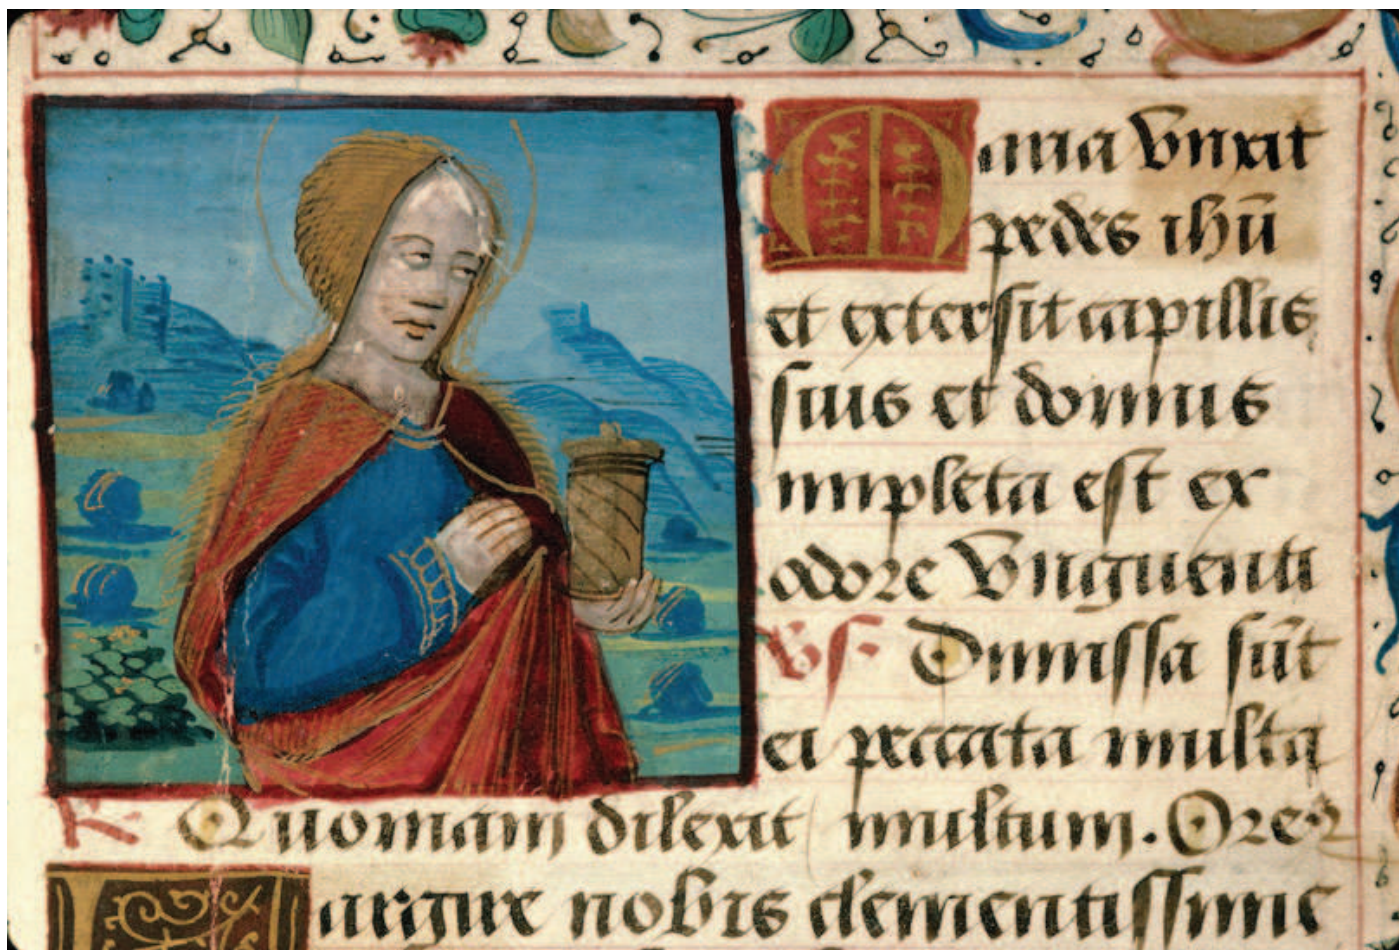 Maria vnxit
pedes ihū
et extersit capillis
suis et domus
impleta est ex
odore vnguenti
Vs. Dimissa sūt
ei peccata multa
R. Quoniam dilexit multum. Orem9
Largire nobis clementissime